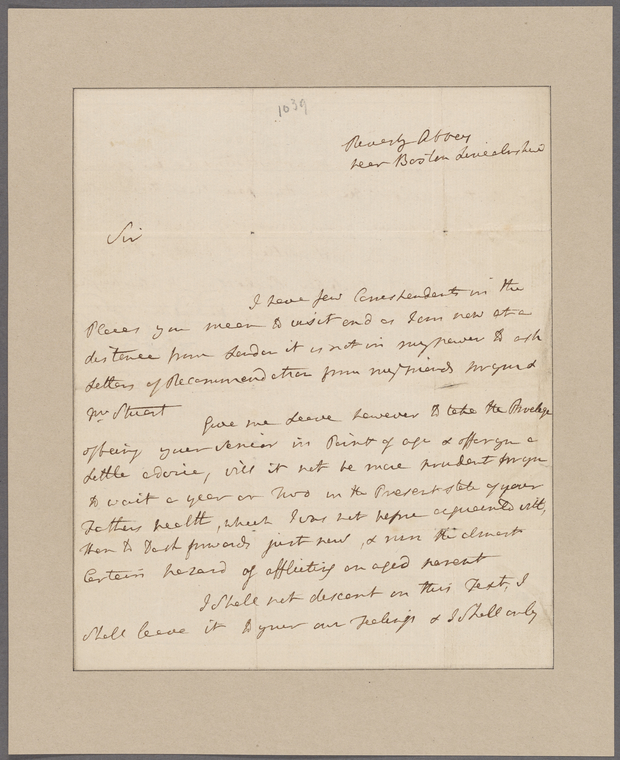 1039
Revesly Abbey
near Boston Lincolnshire
Sir
I have few Correspondents in the
Places you mean to visit and as I am now at a
distance from London it is not in my power to ask
Letters of Recommendation from my friends for you &
Mr Stuart
Give me Leave however to take the Privelege
of being your Senior in Point of age & offer you a
Little advice, will it not be more prudent for you
to wait a year or two in the Present state of your
Fathers health, which I was not before acquainted with,
then to Dash forwards just now, & run the almost
Certain hazard of afflicting an aged parent
I Shall not descant on this Text, I
Shall leave it to your own Feelings & I Shall only